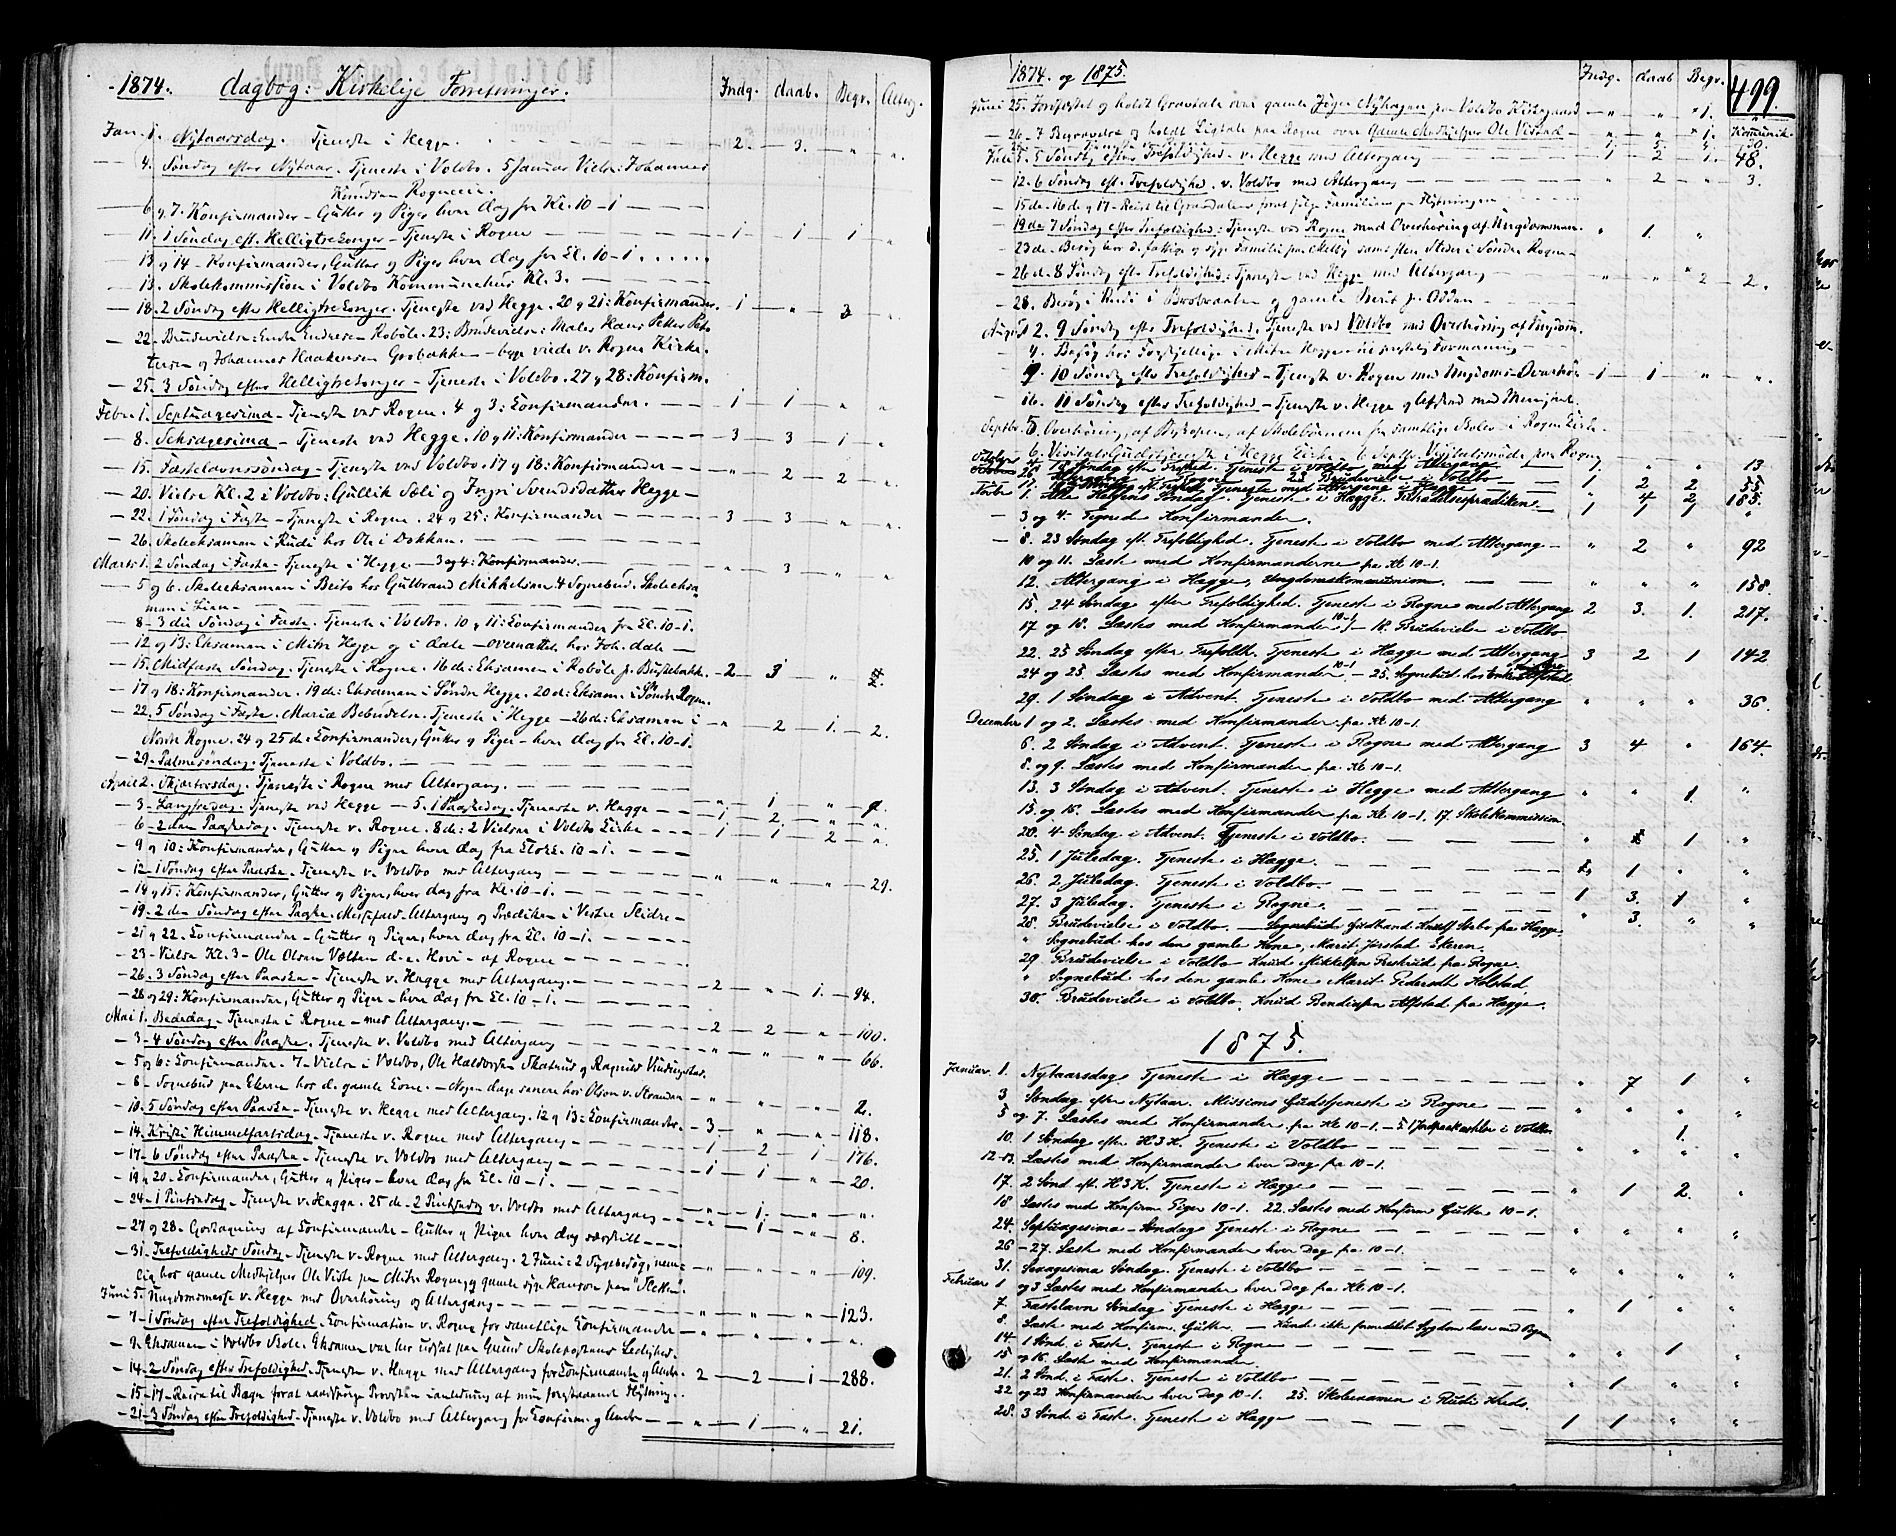 -1874.- dagbog: Kirkelige Forretninger. Indg. daab. Begr. Alterg.
Jan. 1. Nytaarsdag. Tjeneste i Hegge. 2. 3. " "
4. Søndag efter Nytaar. Tjeneste i Voldbo. 5 Januar Vielse: Johannes
Knudsen Rogneeie.
6 og 7. Konfirmander - Gutter og Piger hver dag fra Kl. 10-1
11. 1 Søndag eft. Helligtrekonger - Tjeneste i Rogne 1 1 1 "
13 og 14 - Konfirmander, Gutter og Piger hver dag fra Kl. 10-1
15. Skolekommission i Voldbo Kommunehus Kl. 3.
18. 2 Søndag efter Helligtrekonger. Tjeneste ved Hegge. 20 og 21: Konfirmander. 1 " "
22. Brudevielse: Enke Endresen Robøle. 23: Brudevielse: Maler Hans Petter Pete
tersen og Johannes Haakensen Grobakken - begge viede v. Rogne Kirke.
25. 3 Søndag efter Helligtrekonger - Tjeneste i Voldbo. 27 og 28: Konfirm.
Febr. 1. Septuagesima - Tjeneste ved Rogne. 4 og 3: Konfirmander. 1 1 " "
8. Seksagesima - Tjeneste ved Hegge. 10 og 11: Konfirmander 3 3 1 "
15. Fastelavnssøndag - Tjeneste ved Voldbo. 17 og 18: Konfirmander " 2 2 "
20. Vielse Kl. 2 i Voldbo: Gullik Sæli og Ingri Svendsdatter Hegge
22. 1 Søndag i Faste - Tjeneste i Rogne. 24 og 25: Konfirmander 3 3 " "
26. Skoleeksamen i Rudi hos Ole i Dokken.
Marts 1. 2 Søndag i Faste - Tjeneste i Hegge - 3 og 4: Konfirmander. " 3 " "
5 og 6. Skoleeksamen i Beito hos Gulbrand Mikkelsen. 4 Sognebud. Skoleeksa
men i Lien
8 - 3die Søndag i Faste. Tjeneste i Voldbo. 10 og 11: Konfirmander fra Kl. 10-1.
12 og 13: Eksamen i Mitre Hegge og i dale - overnattet hos Joh. dale
15. Midfaste Søndag. Tjeneste i Rogne. 16de: Eksamen i Robøle p. Buskebakk. 2 3 "
17 og 18: Konfirmander. 19de: Eksamen i Søndre Hegge. 20de: Eksamen i Søndre Rogne.
22. 5 Søndag i Faste. Mariæ Bebudelse. Tjeneste i Hegge - 26de: Eksamen i " 2 1. 2.
Nordre Rogne. 24 og 25de: Konfirmander, Gutter og Piger - hver dag fra Kl. 10-1.
29. Palmesøndag. Tjeneste i Voldbo.
April 2. Skjærtorsdag. Tjeneste i Rogne med Altergang.
3. Langfredag. Tjeneste ved Hegge - 5. 1 Paaskedag. Tjeneste v. Hegge
6 - 2den Paaskedag. Tjeneste v. Rogne. 8de: 2 Vielser i Voldbo Kirke 1 1 2 "
9 og 10: Konfirmander, Gutter og Piger hver dag fra Klokk. 10-1.
12 - 1 Søndag efter Paaske. Tjeneste v. Voldbo med Altergang " " " 29.
14 og 15: Konfirmander, Gutter og Piger, hver dag fra Kl. 10-1.
19. 2den Søndag efter Paaske. Messefald. Altergang og Prædiken i Vestre Slidre
21 og 22. Konfirmander - Gutter og Piger, hver dag fra Kl. 10-1.
23 - Vielse Kl. 3 - Ole Olsen Vælten d.e. Hovi - af Rogne
26. 3 Søndag efter Paaske - Tjeneste v. Hegge med Altergang. 2 " 1. 94.
28 og 29: Konfirmander, Gutter og Piger - hver dag fra Kl. 10-1.
Mai 1. Bededag - Tjeneste i Rogne - med Altergang. 2 2 " 100.
3 - 4 Søndag efter Paaske. Tjeneste v. Voldbo med Altergang " " " 66.
5 og 6: Konfirmander. 7 - Vielse i Voldbo, Ole Haldorsen Skattebu og Ragnild
8 - Sognebud paa Ekern hos d. gamle Kone. - Nogen dage senere hos Olson v. Stranden " " " 2.
10. 5 Søndag efter Paaske - Tjeneste v. Hegge med Altergang. 12 og 13: Konfirmander. 3 " " 118.
14. Kristi Himmelfartsdag - Tjeneste v. Rogne med Altergang 1 2 1 176.
17 - 6 Søndag efter Paaske - Tjeneste v. Voldbo med Altergang 1 1 " 20.
19 og 20 - Konfirmander, Gutter og Piger - hver dag fra Kl. 10-1.
24 - 1 Pintsedag - Tjeneste v. Hegge. 25de - 2 Pintsedag v. Voldbo med Altergang " 1 " "
27 og 28 - Godtagning af Konfirmander - Gutter og Piger hver dag særskilt " 1 " 8.
31. Trefoldigheds Søndag - Tjeneste v. Rogne med Altergang. 2 Juni: 2 Sygebesøg, nem " " " 109.
lig hos gamle Medhjelper Ole Viste paa Mitre Rogne og gamle syge paa "Sletten".
Juni 5. Ungdomsmesse v. Hegge med Overhøring og Altergang " " " 123.
7 - 1 Søndag efter Trefoldighed - Konfirmation v. Rogne for samtlige Konfirmander " " " "
9. Eksamen i Voldbo Skole. Eksamen var her udsat paa Grund Skoleholderens
14 - 2 Søndag efter Trefoldighed. Tjeneste v. Hegge med Altergang for Konfirmander og Andre. 2 2 1 288.
15 - 17 - Reise til Bagn forat raadspørge Provsten i anledning af min forestaaende Flytning.
21 - 3 Søndag efter Trefoldighed - Tjeneste v. Voldbo med Altergang for Konfirm. og Andre " 1 " 21.
1874. og 1875. Indg. daab Begr. 499.
Juni 25. Forrettet og holdt Gravtale over gamle Jøger Nyhagen paa Voldbo Kirkegaard " " 1. "
26 - 7 Begravelse og holdt Ligtale paa Rogne over Gamle Medhjelper Ole Viste " " 1. Komunik.
Juli 5. 5 Søndag efter Trefoldighed - v. Hegge med Altergang 1. 2 1. 48.
12. 6 Søndag eft. Trefoldighed. v. Voldbo med Altergang " 2 " 3.
15de - 16de og 17 - Reist til Gransdalen forat følge Familien paa Flytningen
19de 7 Søndag efter Trefoldighed: Tjeneste ved Rogne med Overhøring af Ungdommen. " 1. "
23de. Besøg hos d. fattige og syge Familie paa samt flere Steder i Søndre Rogne
26de 8 Søndag efter Trefoldighed: Tjeneste ved Hegge med Altergang " " 2 2.
28. Besøg i Rudi i Brobraaten og gamle Berit p. Odden
August 2. 9 Søndag efter Trefoldighed. Tjeneste ved Voldbo med Overhøring af Ungdom.
4. Besøg hos Forskjellige i Mitre Hegge Formaning
9. 10 Søndag efter Trefoldighed - Tjeneste v. Rogne med Ungdoms-Overhør 1 1 " "
16. 11 Søndag efter Trefoldighed - Tjeneste v. Hegge og Afsked med Menighed.
Septbr. 5. Overhøring, af Biskopen, af Skolebørnene fra samtlige Skoler i Rogne Kirke.
6. Visitats Gudstjeneste i Hegge Kirke - 6 Septbr. Visitatsmøde paa Rogne
Oktober Tjeneste i Voldbo med Altergang " " 13
Brudevielse i Voldbo 1. 2 2 55
Novbr 1. Alle Helgens Søndag. Tjeneste i Hegge. Tiltrædelsesprædiken. " 4 2 185.
3 og 4. Tegned Konfirmander. 1 1 1 "
8. 23 Søndag eft. Trefoldighed. Tjeneste i Voldbo med Altergang " 2 " 92
10 og 11. Læste med Konfirmanderne fra Kl 10-1.
12. Altergang i Hegge, Ungdomskommunion. " " " 158.
15. 24 Søndag efter Trefoldighed. Tjeneste i Rogne med Altergang 2 3. 1. 217.
17 og 18. Læstes med Konfirmander 10-1 - 18. Brudevielse i Voldbo
22. 25 Søndag efter Trefoldh. Tjeneste i Hegge med Altergang 3 2 1 142
24 og 25. Læstes med Konfirmander 10-1 - 25. Sognebud hos
29. 1 Søndag i Advent. Tjeneste i Voldbo med Altergang " " " 36.
December 1 og 2. Læstes med Konfirmander fra Kl 10-1.
6. 2 Søndag i Advent. Tjeneste i Rogne med Altergang 3 4 " 164.
8. og 9. Læstes med Konfirmander fra Kl 10-1.
13. 3 Søndag i Advent. Tjeneste i Hegge med Altergang " " 1. "
15 og 16. Læstes med Konfirmander fra Kl 10-1. 17. Skolekommission.
20. 4 Søndag i Advent. Tjeneste i Voldbo. " 1 "
25. 1 Juledag. Tjeneste i Hegge. 1 " "
26. 2 Juledag. Tjeneste i Voldbo. 1 3. 1 "
27. 3 Juledag. Tjeneste i Rogne. " 3. " "
28. Brudevielse i Voldbo. Sognebud paa Hegge.
" Sognebud hos den gamle Kone, Marit Jørstad Ekeren.
29 Brudevielse i Voldbo Knud Mikkelsen Prestrud fra Rogne.
" Sognebud hos den gamle Kone Marit Pedersdt Holstad
30. Brudevielse i Voldbo. Knud Bendiksen Alfstad fra Hegge.
1875.
Januar. 1. Nytaarsdag Tjeneste i Hegge " 7 1 "
3 Søndag efter Nytaar. Missions Gudstjeneste i Rogne " " " "
5 og 7. Læstes med Konfirmander fra Kl 10-1. - 5 1 Jordpaakastelse i Voldbo
10. 1 Søndag efter H.3 K. Tjeneste i Voldbo 1.
12-13. Læstes med Konfirmander hver Dag fra 10-1.
17. 2 Sønd. eft. H.3 K. Tjeneste i Hegge " 1 2. "
18 Læstes med Konfirm Piger 10-1. 22. Læstes med Konfirm Gutter 10-1.
24. Septuagesima Søndag Tjeneste i Rogne " " " "
26-27. Læst med Konfirmander hver Dag fra 10-1.
31. Sexagesima Søndag. Tjeneste i Voldbo " " " "
Februar 1 og 3 Læstes med Konfirmander hver Dag fra Kl 10-1.
7 Fastelavn Søndag Tjeneste i Hegge " 1 " "
8. Læste med Konfirm. Gutter. - Kunde ikke formedelst Sygdom læse med Pigerne
14. 1 Sønd. i Fast. Tjeneste i Rogne " " 1 "
15 og 16. Læste med Konfirmander.
21. 2 Sønd. i Faste. Tjeneste i Voldbo " 1 " "
22 og 23 Konfirmander hver Dag 10-1. 25. Skoleexamen i Rudi Kreds.
28. 3 Sønd. i Fast. Tjeneste i Hegge 1 1 " "